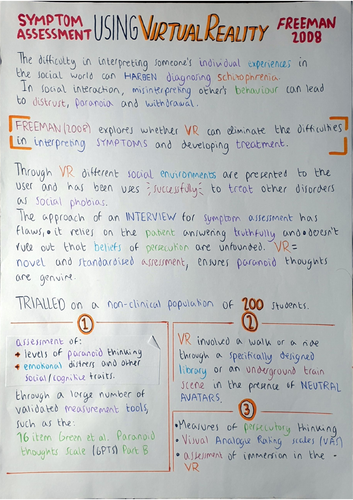 SYMPTOM ASSESSMENT USING VIRTUAL REALITY FREEMAN 2008
The difficulty in interpreting someone's individual experiences in
the social world can HARBEN diagnosing schizophrenia.
In social interaction, misinterpreting other's behaviour can lead
to distrust, paranoia and withdrawal.
FREEMAN (2008) explores whether VR can eliminate the difficulties
in interpreting SYMPTOMS and developing treatment.
Through VR different social environments are presented to the
user and has been uses successfully to treat other disorders
as social phobias.
The approach of an INTERVIEW for symptom assessment has
flaws, • it relies on the patient answering truthfully and • doesn't
rule out that beliefs of persecution are unfounded. VR =
novel and standardised assessment, ensures paranoid thoughts
are genuine.
TRIALLED on a non-clinical population of 200 students.
1
assessment of:
• levels of paranoid thinking
• emotional distress and other
social/cognitive traits.
through a large number of
validated measurement tools,
such as the:
16 item Green et al. Paranoid
thoughts Scale (GPTS) Part B
2
VR involved a walk or a ride
through a specifically designed
library or an underground train
scene in the presence of NEUTRAL
AVATARS.
3
• Measures of persecutory thinking
• Visual Analogue Rating scales (VAS)
• assessment of immersion in the -
VR